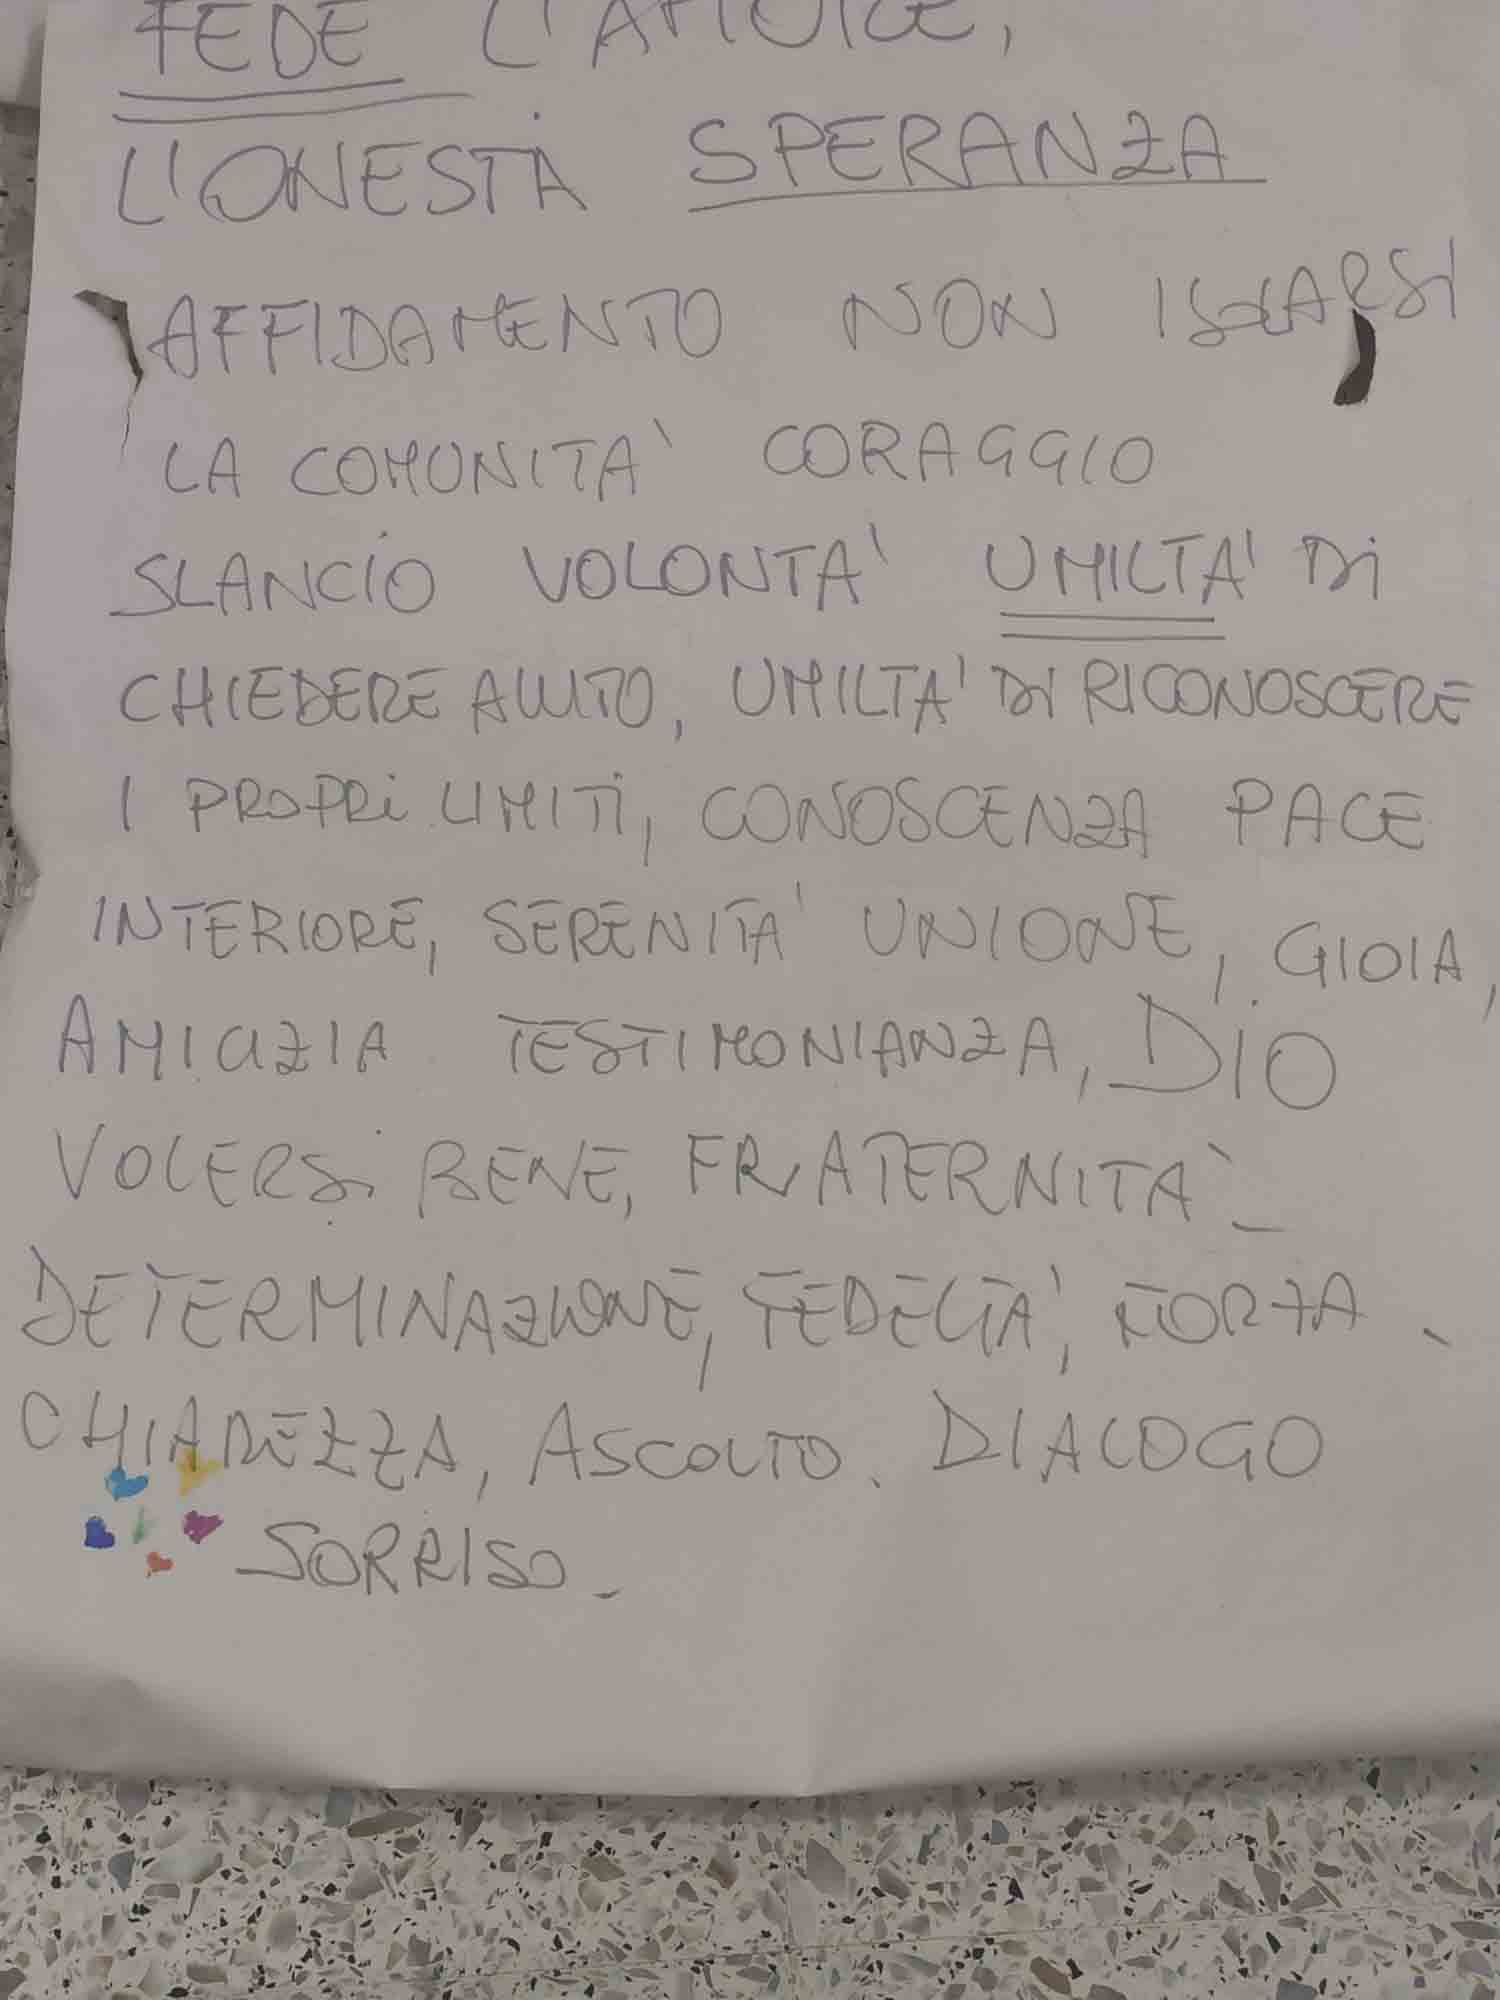 FEDE L'AMORE,
L'ONESTÀ SPERANZA
AFFIDAMENTO NON ISOLARSI
LA COMUNITA' CORAGGIO
SLANCIO VOLONTA' UMILTA' Di
CHIEDERE AIUTO, UMILTA' Di RICONOSCERE
I PROPRi LIMITi, CONOSCENZA PACE
INTERIORE, SERENITA' UNIONE, GIOIA,
AMICIZIA TESTIMONIANZA, DIO
VOLERSi BENE, FRATERNITA' -
DETERMINAZIONE, FEDELTA', FORZA -
CHIAREZZA, ASCOLTO. DIALOGO
SORRISO -